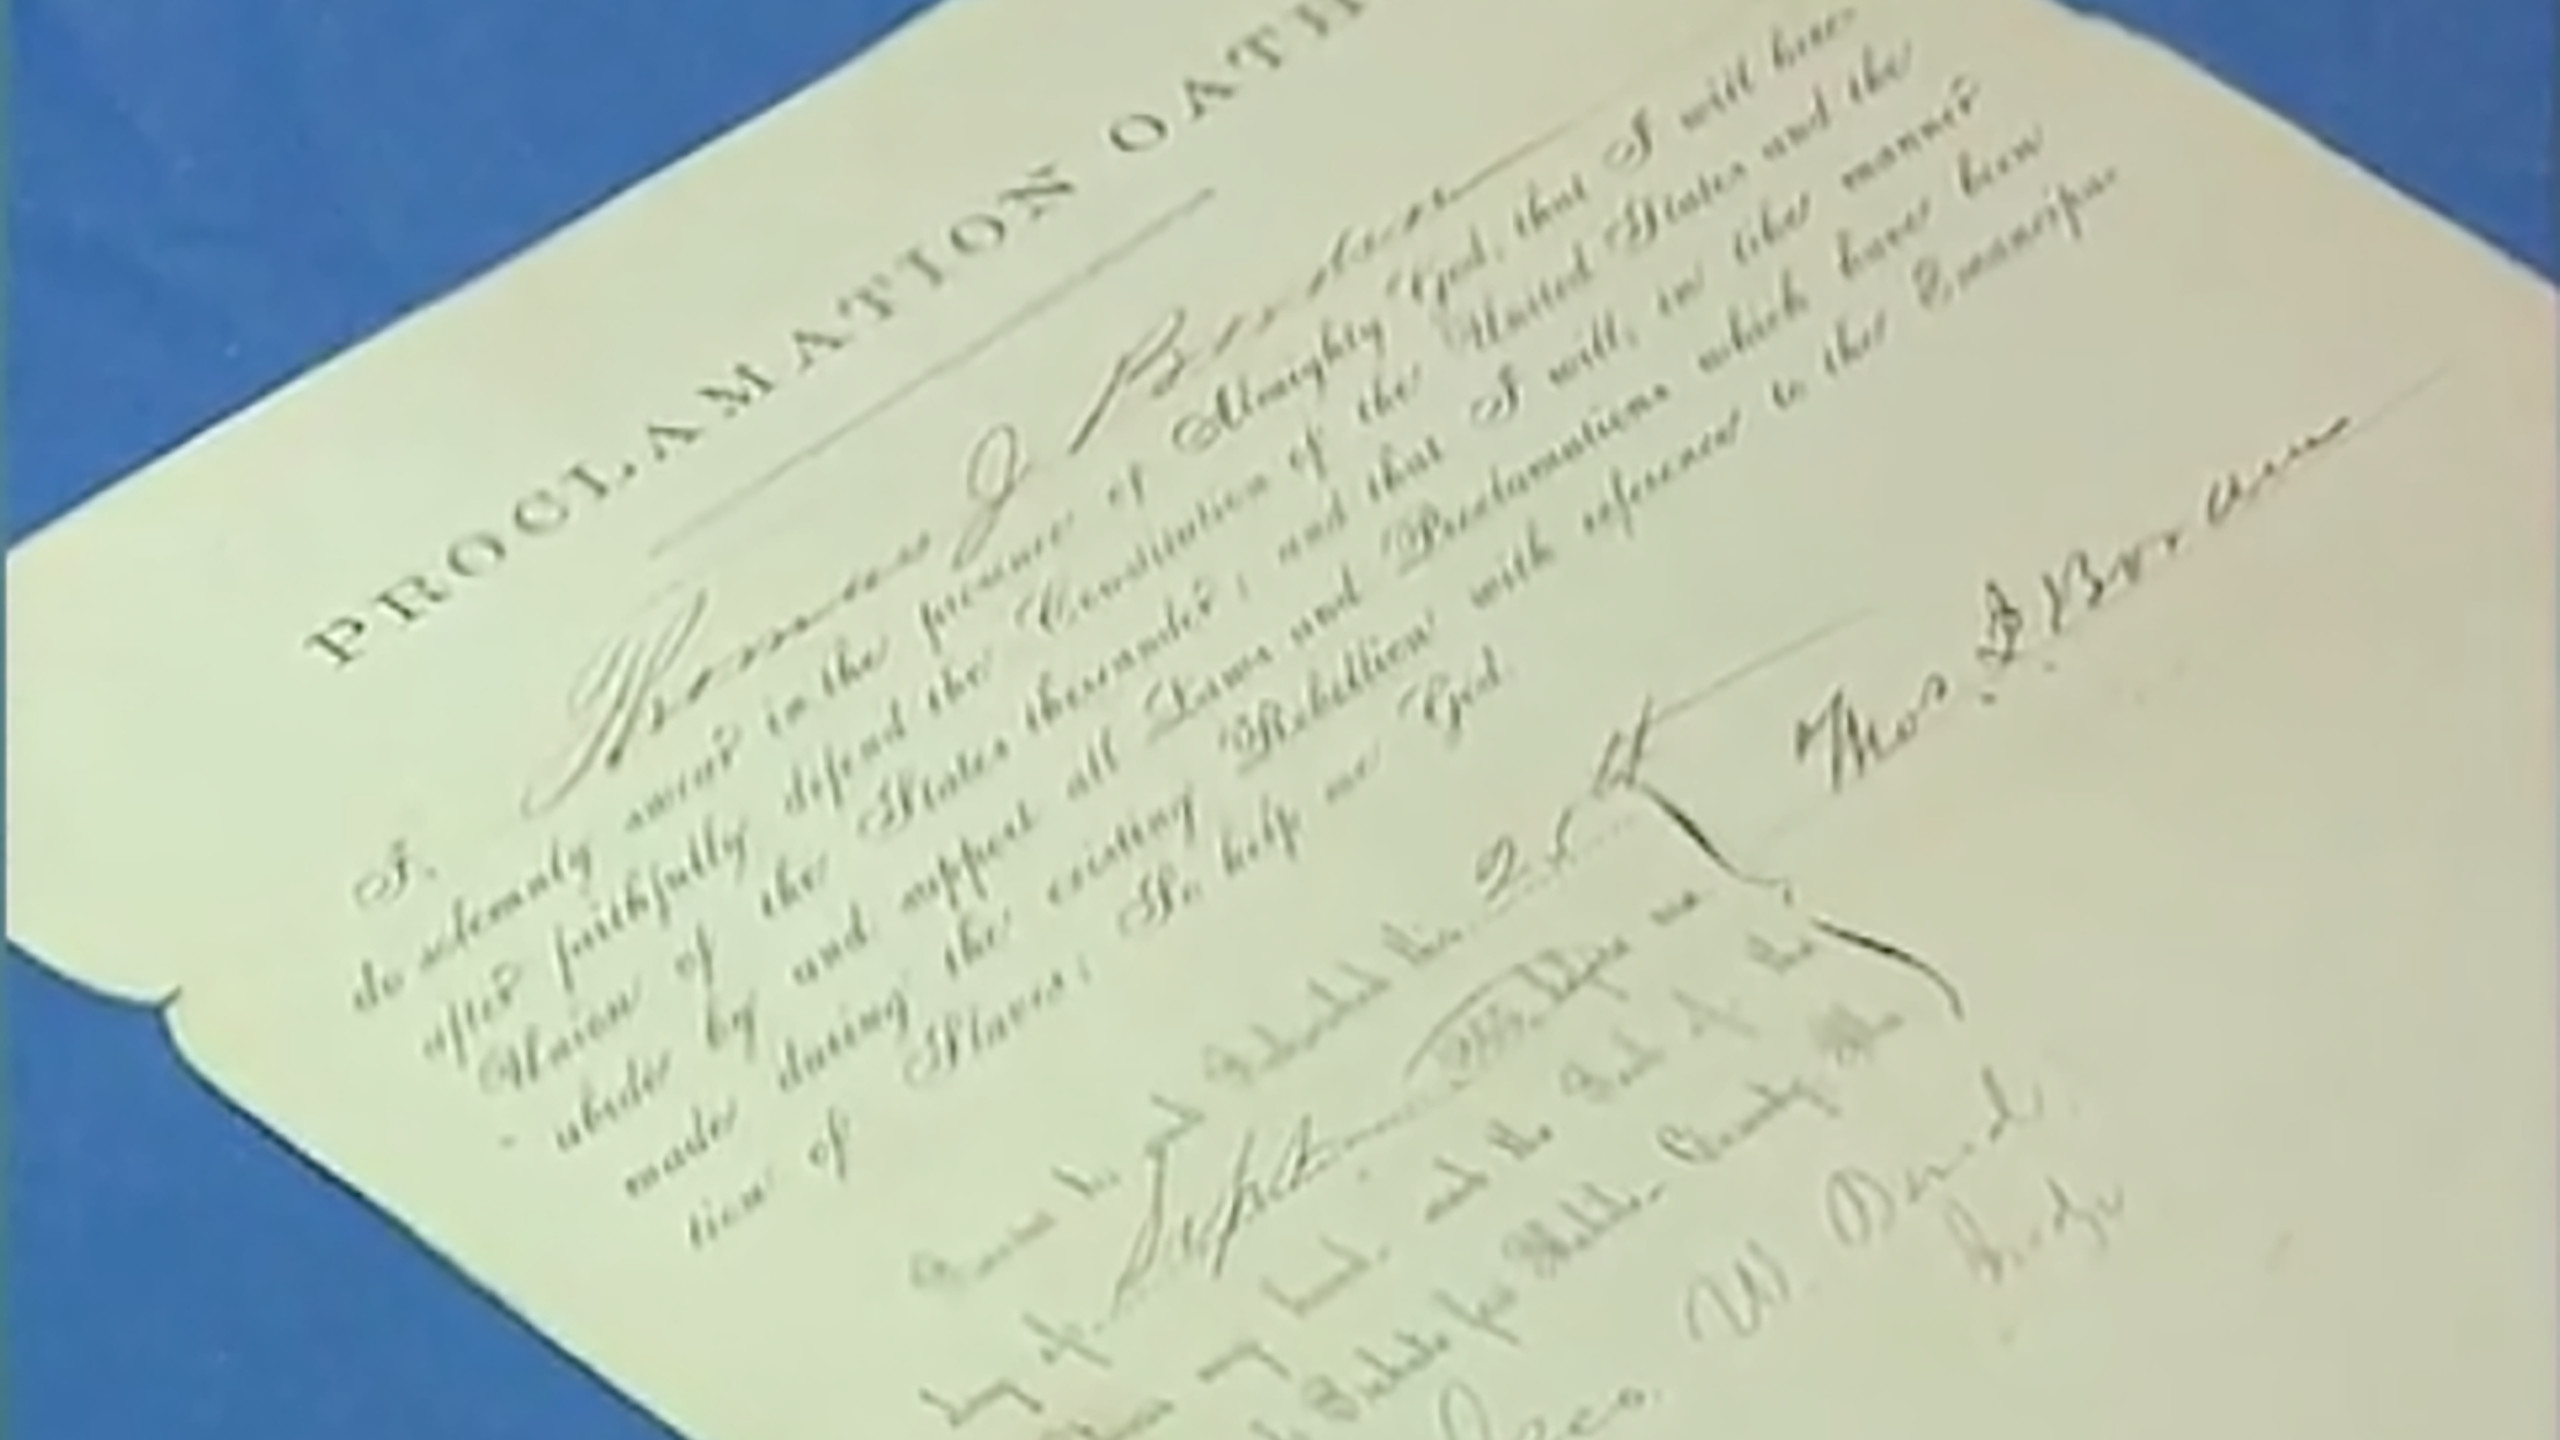 PROCLAMATION OATH
I, Thomas J
do solemnly swear in the presence of Almighty God, that I will here-
after faithfully defend the Constitution of the United States and the
Union of the States thereunder; and that I will, in like manner
abide by and support all Laws and Proclamations which have been
made during the existing Rebellion with reference to the Emancipa-
tion of Slaves; So help me God.
Thos J
Sworn to and Subscribed this 25
day of Sept
my hand and the Seal of the
Probate for Mobile County
Geo. W. Bond
Judge